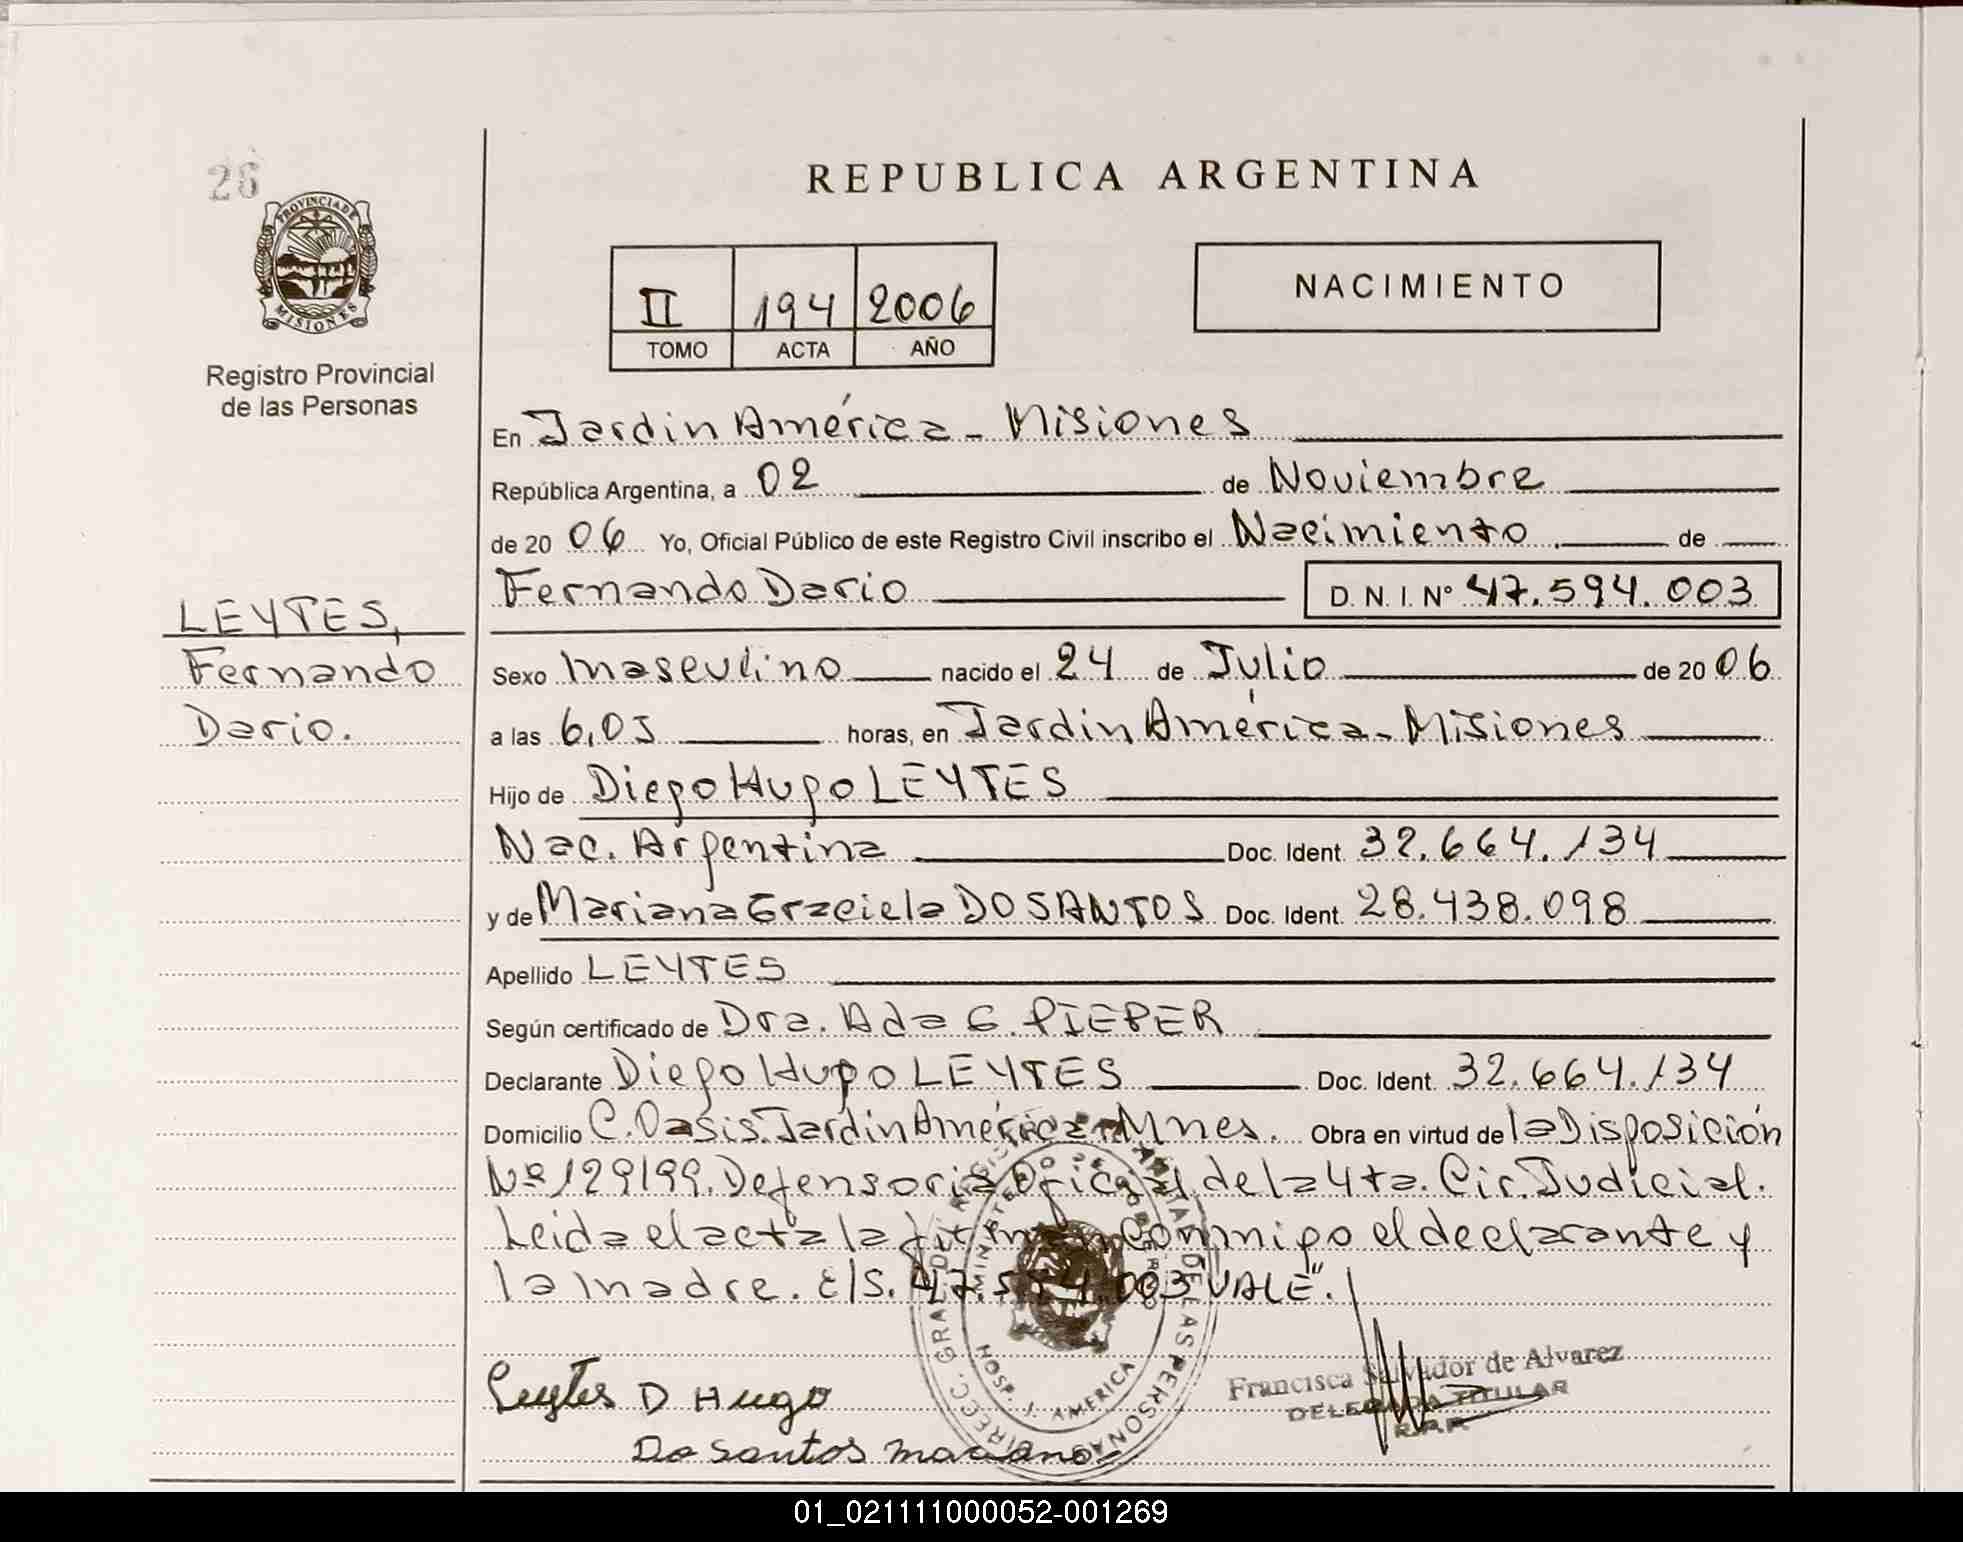 26
PROVINCIA DE
MISIONES
Registro Provincial
de las Personas
LEYTES,
Fernando
Dario.
REPUBLICA ARGENTINA
II 194 2006
TOMO ACTA AÑO
NACIMIENTO
En Jardin América - Misiones
República Argentina, a 02 de Noviembre
de 20 06 Yo, Oficial Público de este Registro Civil inscribo el Nacimiento de
Fernando Dario D. N. I. N° 47.594.003
Sexo masculino nacido el 24 de Julio de 20 06
a las 6,05 horas, en Jardin América - Misiones
Hijo de Diego Hugo LEYTES
Nac. Argentina Doc. Ident. 32.664.134
y de Mariana Graciela DO SANTOS Doc. Ident. 28.438.098
Apellido LEYTES
Según certificado de Dra. Ada G. PIEPER
Declarante Diego Hugo LEYTES Doc. Ident. 32.664.134
Domicilio C. Oasis. Jardin América - Mnes. Obra en virtud de la Disposición
Nº 129/99. Defensoria Oficial de la 4ta. Cir. Judicial.
Leida el acta la firman conmigo el declarante y
la madre. E/S. 47.594.003 "VALE".
Leytes D Hugo
Do Santos Mariana
HOSP. J. AMERICA
Francisca Salvador de Alvarez
DELEGADA TITULAR
R.P.P.
01_021111000052-001269